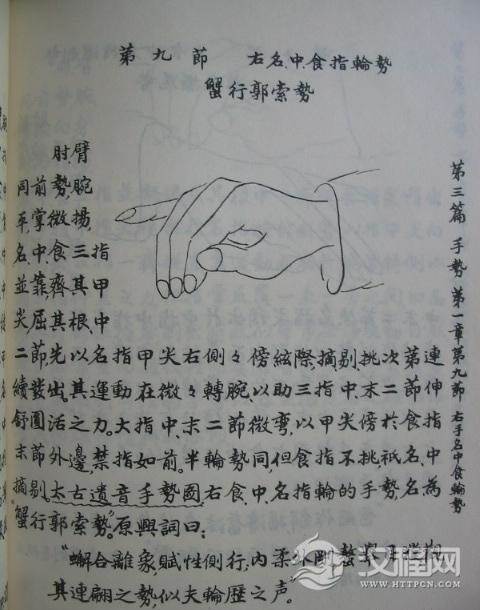 第九節 右名、中、食指輪勢
蟹行郭索勢
肘、臂
同前勢,腕
平,掌微揚,
名、中、食三指
並靠,齊其甲
尖,屈其根、中
二節,先以名指甲尖右側々傍絃際,摘剔挑次第連
續發出,其運動在微々轉腕,以助三指中、末二節伸
舒圓活之力。大指中、末二節微彎,以甲尖傍於食指
末節外邊,禁指如前。半輪勢同但食指不挑,祇名、中
摘剔。太古遺音手勢圖右食中名指輪的手勢,名為
蟹行郭索勢。原興詞曰:
“蠏合離象,賦性側行;內柔外剛,螯
其連翩之勢,似夫輪歷之声。”
第三篇 手勢 第一章 第九節 右手名中食輪勢
汉程网
HTTPCN.COM